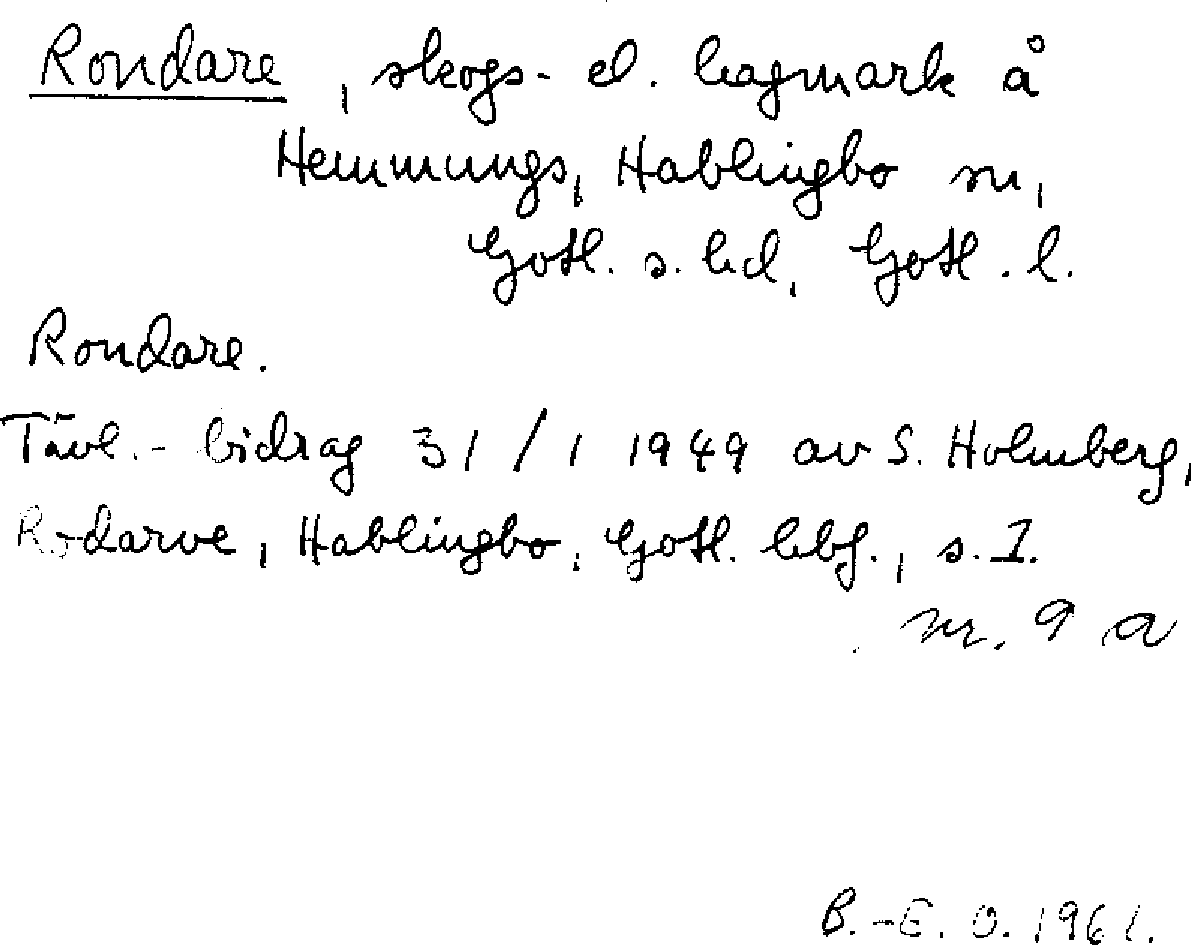 Rondare, skogs- el. hagmark å
Hemmungs, Hablingbo sn,
Gotl. s. hd, Gotl. l.
Rondare.
Tävl.- bidrag 31/1 1949 av S. Holmberg,
Rodarve, Hablingbo, Gotl. hbf., s. 1.
nr. 9 a
B.-E. O. 1961.